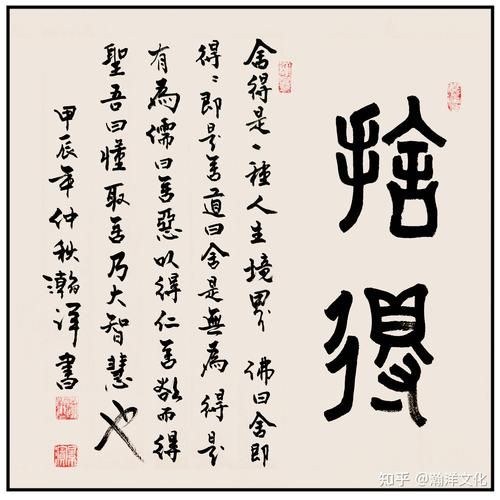 捨得
舍得是一種人生境界 佛曰舍即
得〻即是舍道曰舍是無為得是
有為儒曰舍惡以得仁舍欲而得
聖吾曰懂取舍乃大智慧也
甲辰年仲秋瀚洋書
知乎 @瀚洋文化